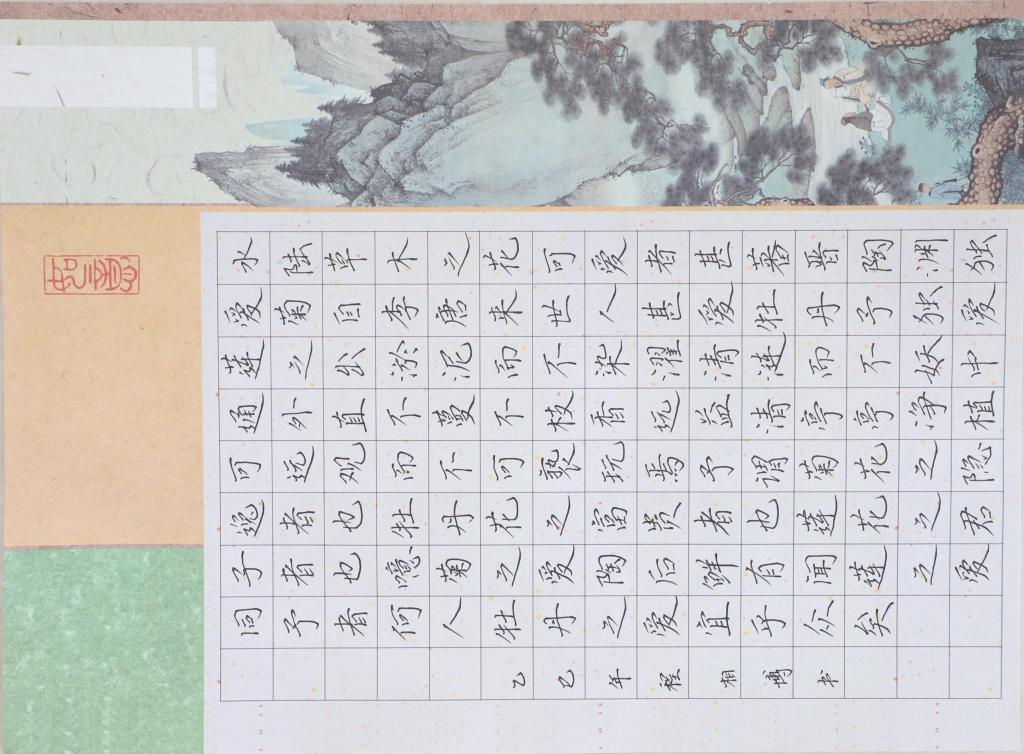 水陆草木之花可爱者甚蕃晋陶渊独
爱菊自李唐来世人甚爱牡丹予独爱
莲之出淤泥而不染濯清涟而不妖中
通外直不蔓不枝香远益清亭亭净植
可远观而不可亵玩焉予谓菊花之隐
逸者也牡丹花之富贵者也莲花之君
子者也噫菊之爱陶后鲜有闻莲之爱
同予者何人牡丹之爱宜乎众矣
乙巳年程相博书